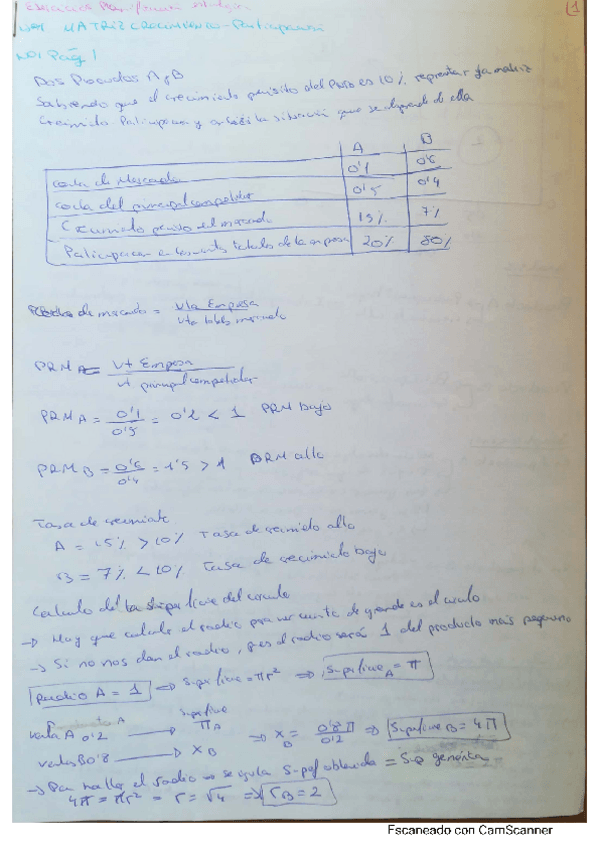 1
Nº1 MATRIZ CRECIMIENTO-Participación
Nº1 Pág 1
Dos Productos A y B
Sabiendo que el crecimiento previsto del PNB es 10% representar la matriz
Crecimiento Participación y analiza la situación que se desprende de ella
A B
cuota de Mercado 0'1 0'6
cuota del principal competidor 0'5 0'4
Crecimiento previsto del mercado 15% 7%
Participación en las ventas totales de la empresa 20% 80%
de mercado = Vta Empresa / Vta totales mercado
PRM A = Vt Empresa / Vt principal competidor
PRM A = 0'1 / 0'5 = 0'2 < 1 PRM bajo
PRM B = 0'6 / 0'4 = 1'5 > 1 PRM alto
Tasa de crecimiento
A = 15% > 10% Tasa de crecimiento alto
B = 7% < 10% Tasa de crecimiento bajo
Calculo de la superficie del circulo
→ Hay que calcular el radio para ver cuanto de grande es el circulo
→ Si no nos dan el radio, el radio será 1 del producto más pequeño
Radio A = 1 ⇒ Superficie = πr² ⇒ Superficie A = π
superficie
venta A 0'2 → π A
ventas B 0'8 → X B ⇒ X B = 0'8 π / 0'2 ⇒ Superficie B = 4π
→ Para hallar el radio se iguala Superf obtenida = Sup genérica
4π = πr² = r = √4 ⇒ r B = 2
Escaneado con CamScanner